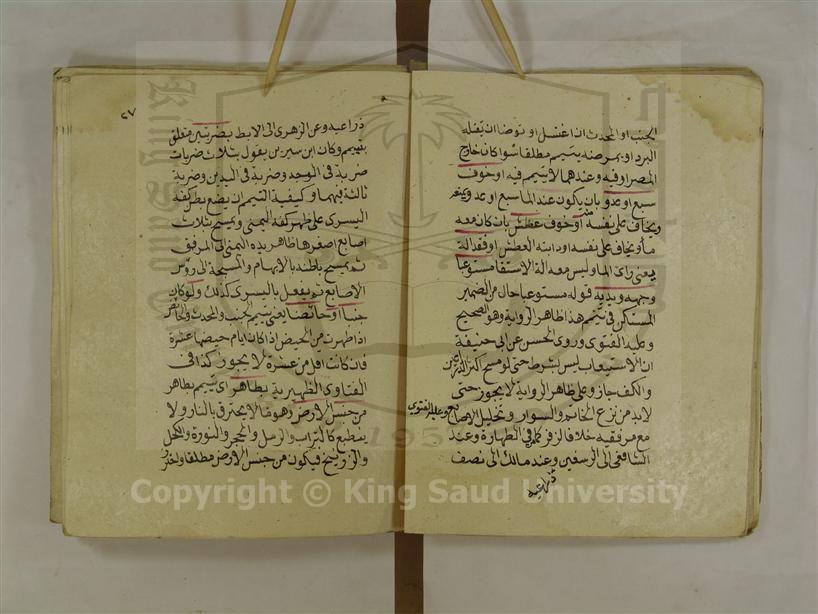 الجنب او المحدث ان اغتسل او توضا ان يقتله
البرد او يمرضه يتيمم مطلقا سوا كان خارج
المصر او فيه وعندهما لا يتيمم فيه او خوف
سبع او عدو بان يكون عند الما سبع او عدو
ويخاف على نفسه او خوف عطش بان كان معه
ما ويخاف على نفسه او دابته العطش او فقد الة
يعنى راى الما وليس معه الة الاستقا مستوعبا
وجهه ويديه قوله مستوعبا حال من الضمير
المستكن فى تيمم هذا ظاهر الرواية وهو الصحيح
وعليه الفتوى وروى الحسن عن ابى حنيفة
ان الاستيعاب ليس بشرط حتى لو مسح اكثر الذراعين
والكف جاز وعلى ظاهر الرواية لا يجوز حتى
لابد من نزع الخاتم والسوار وتخليل الاصابع وعليه الفتوى
مع مرفقيه خلافا لزفر كما فى الطهارة وعند
الشافعى الى الرسغين وعند مالك الى نصف
ذراعيه
٢٧
ذراعيه وعن الزهرى الى الابط بضربتين متعلق
بتيمم وكان ابن سيرين يقول بثلاث ضربات
ضربة فى الوجه وضربة فى اليدين وضربة
ثالثة فيهما وكيفية التيمم ان يضع بطن كفه
اليسرى على ظهر كفه اليمنى ويمسح بثلاث
اصابع اصغرها ظاهر يده اليمنى الى المرفق
ثم يمسح باطنه بالابهام والمسبحة الى روس
الاصابع ثم يفعل باليسرى كذلك ولو كان
جنبا او حائضا يعنى تيمم الجنب والمحدث والحائض
اذا طهرت من الحيض اذا كان ايام حيضها عشرة
فان كانت اقل من عشرة لا يجوز كذا فى
الفتاوى الظهيرية بطاهر اى تيمم بطاهر
من جنس الارض وهو ما لا يحترق بالنار ولا
ينطبع كالتراب والرمل والحجر والنورة والكحل
والزرنيخ فيكون من جنس الارض مطلقا
Copyright © King Saud University
King Saud University
1957